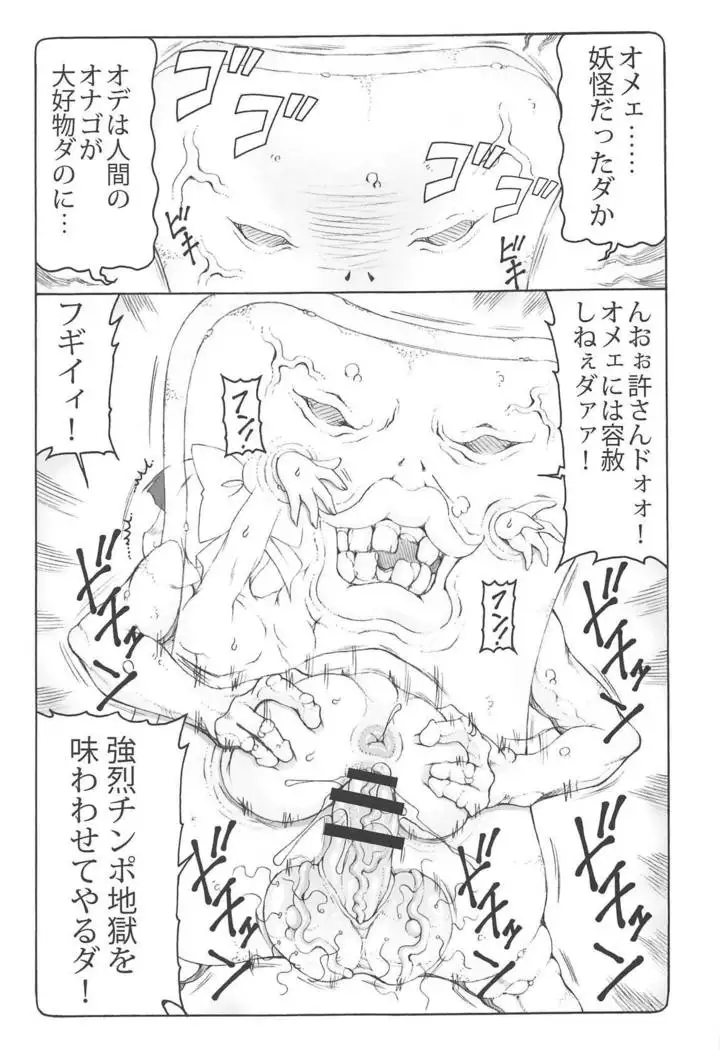 オメェ……
妖怪だったダか
オデは人間の
オナゴが
大好物ダのに…
ゴゴ
ゴゴ
ビキ
ビキ
んおぉ許さんドォォ！
オメェには容赦
しねぇダァァ！
フギイィ！
フン!!
フン!!
ドチュッ
ドチュン
ドチュッ
ドチュン
強烈チンポ地獄を
味わわせてやるダ！